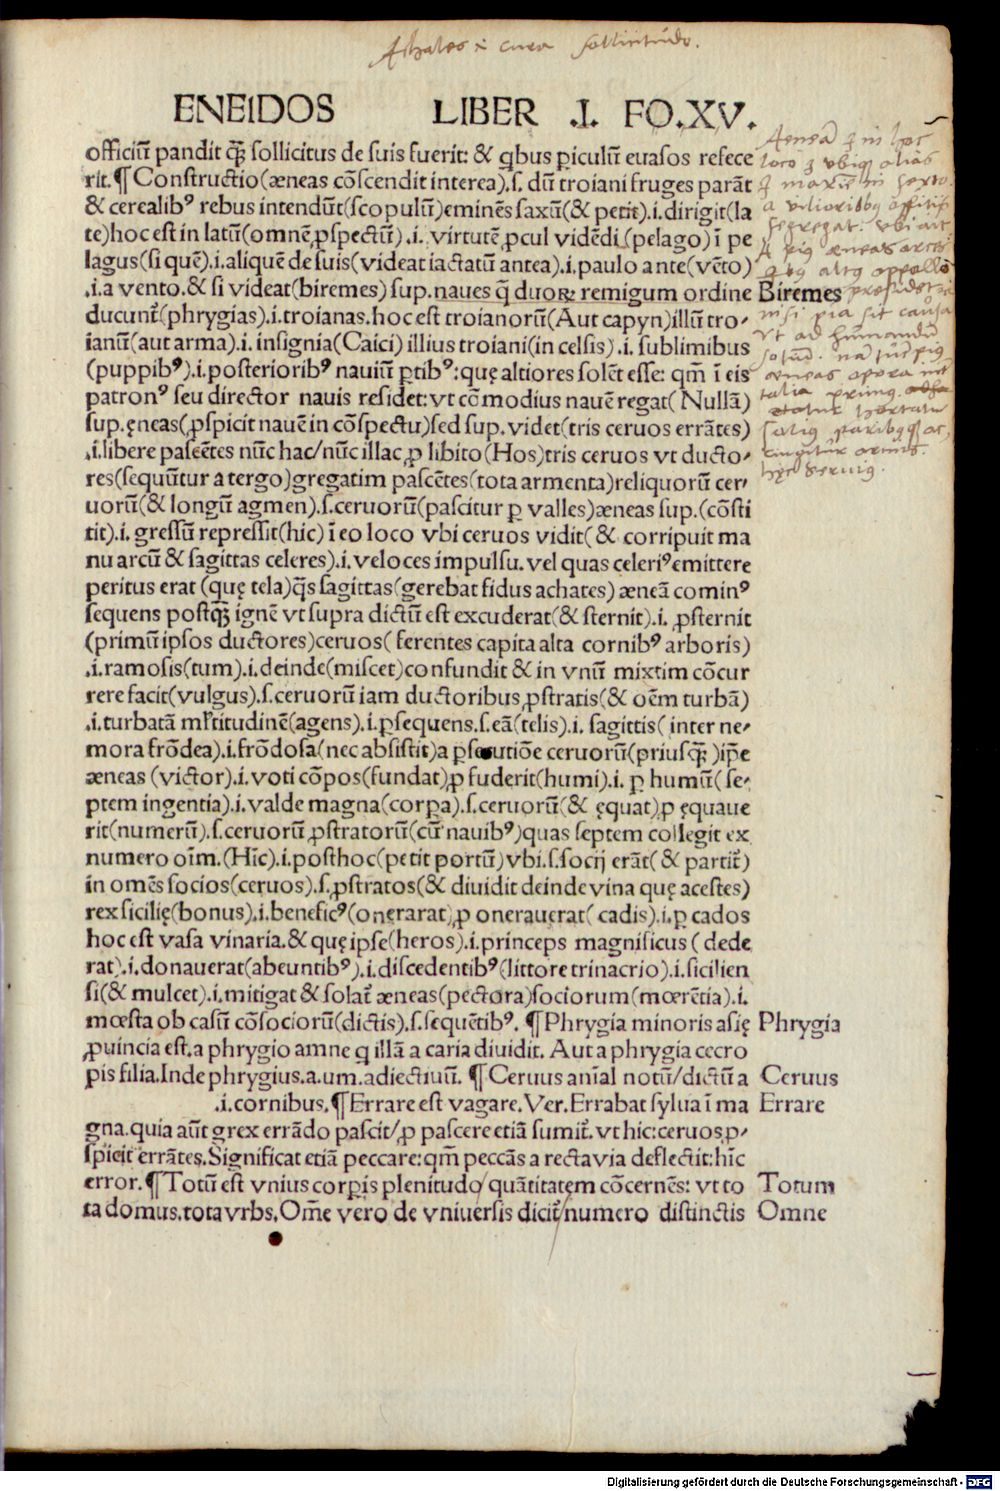 Achates i cura sollicitudo.
ENEIDOS LIBER .I. FO.XV.
officiū pandit qꝫ̄ sollicitus de suis fuerit: & qbus ꝑiculū euasos refece
rit.¶ Constructio(æneas cōscendit interea).s. dū troiani fruges parāt
& cerealibꝰ rebus intendūt(scopulū)eminēs saxū(& petit).i.dirigit(la
te)hoc est in latū(omnē ꝓspectū).i. virtutē ꝓcul vidēdi (pelago) ī pe
lagus(si quē).i.aliquē de suis(videat iactatū antea).i.paulo ante(vēto)
.i.a vento.& si videat(biremes) sup.naues q̄ duoꝝ remigum ordine Biremes
ducunt̄(phrygias).i.troianas.hoc est troianorū(Aut capyn)illū tro-
ianū(aut arma).i. insignia(Caici) illius troiani(in celsis) .i. sublimibus
(puppibꝰ).i.posterioribꝰ nauiū ꝑtibꝰ:quę altiores solēt esse: qm̄ ī eis
patronꝰ seu director nauis residet:vt cōmodius nauē regat( Nullā)
sup.ęneas(ꝓspicit nauē in cōspectu)sed sup. videt(tris ceruos errātes)
.i.libere pascētes nūc hac/nūc illac ꝓ libito(Hos)tris ceruos vt ducto-
res(sequūtur a tergo)gregatim pascētes(tota armenta)reliquorū cer-
uorū(& longū agmen).s.ceruorū(pascitur ꝑ valles)æneas sup.(cōsti
tit).i. gressū repressit(hic) ī eo loco vbi ceruos vidit( & corripuit ma
nu arcū & sagittas celeres).i. veloces impulsu. vel quas celeriꝰ emittere
peritus erat (quę tela)q̄s sagittas(gerebat fidus achates) æneā cominꝰ
sequens postqꝫ̄ ignē vt supra dictū est excuderat(& sternit).i. ꝓsternit
(primū ipsos ductores)ceruos( ferentes capita alta cornibꝰ arboris)
.i.ramosis(tum).i.deinde(miscet)confundit & in vnū mixtim cōcur
rere facit(vulgus).s.ceruorū iam ductoribus ꝓstratis(& oēm turbā)
.i.turbatā ml̄titudinē(agens).i.ꝑsequens.s.eā(telis).i. sagittis( inter ne-
mora frōdea).i.frōdosa(nec absistit)a ꝑsecutiōe ceruorū(priusqꝫ̄ )ip̄e
æneas (victor).i.voti cōpos(fundat)ꝓ fuderit(humi).i. ꝑ humū( se-
ptem ingentia).i.valde magna(corꝑa).s.ceruorū(& ęquat)ꝓ ęquaue
rit(numerū).s.ceruorū ꝓstratorū(cū nauibꝰ)quas septem collegit ex
numero oīm.(Hīc).i.posthoc(petit portū)vbi.s.socij erāt( & partit̄)
in omēs socios(ceruos).s.ꝓstratos(& diuidit deinde vina quę acestes)
rex sicilię(bonus).i.beneficꝰ(onerarat)ꝓ onerauerat( cadis).i.ꝑ cados
hoc est vasa vinaria.& quę ipse(heros).i.princeps magnificus( dede
rat).i.donauerat(abeuntibꝰ).i.discedentibꝰ(littore trinacrio).i.sicilien
si(& mulcet).i.mitigat & solat̄ æneas(pectora)sociorum(mœrētia).i.
mœsta ob casū cōsociorū(dictis).s.sequētibꝰ. ¶ Phrygia minoris asię Phrygia
ꝓuincia est.a phrygio amne q illā a caria diuidit. Aut a phrygia cecro
pis filia.Inde phrygius.a.um.adiectiuū. ¶ Ceruus anīal notū/dictū a Ceruus
.i.cornibus.¶ Errare est vagare.Ver.Errabat sylua ī ma Errare
gna.quia aūt grex errādo pascit/ꝓ pascere etiā sumit̄. vt hic:ceruos ꝓ-
spicit errātes.Significat etiā peccare:qm̄ peccās a recta via deflectit:hīc
error.¶ Totū est vnius corꝑis plenitudo/quātitatem cōcernēs: vt to Totum
ta domus.tota vrbs.Om̄e vero de vniuersis dicit̄/numero distinctis Omne
Digitalisierung gefördert durch die Deutsche Forschungsgemeinschaft - DFG